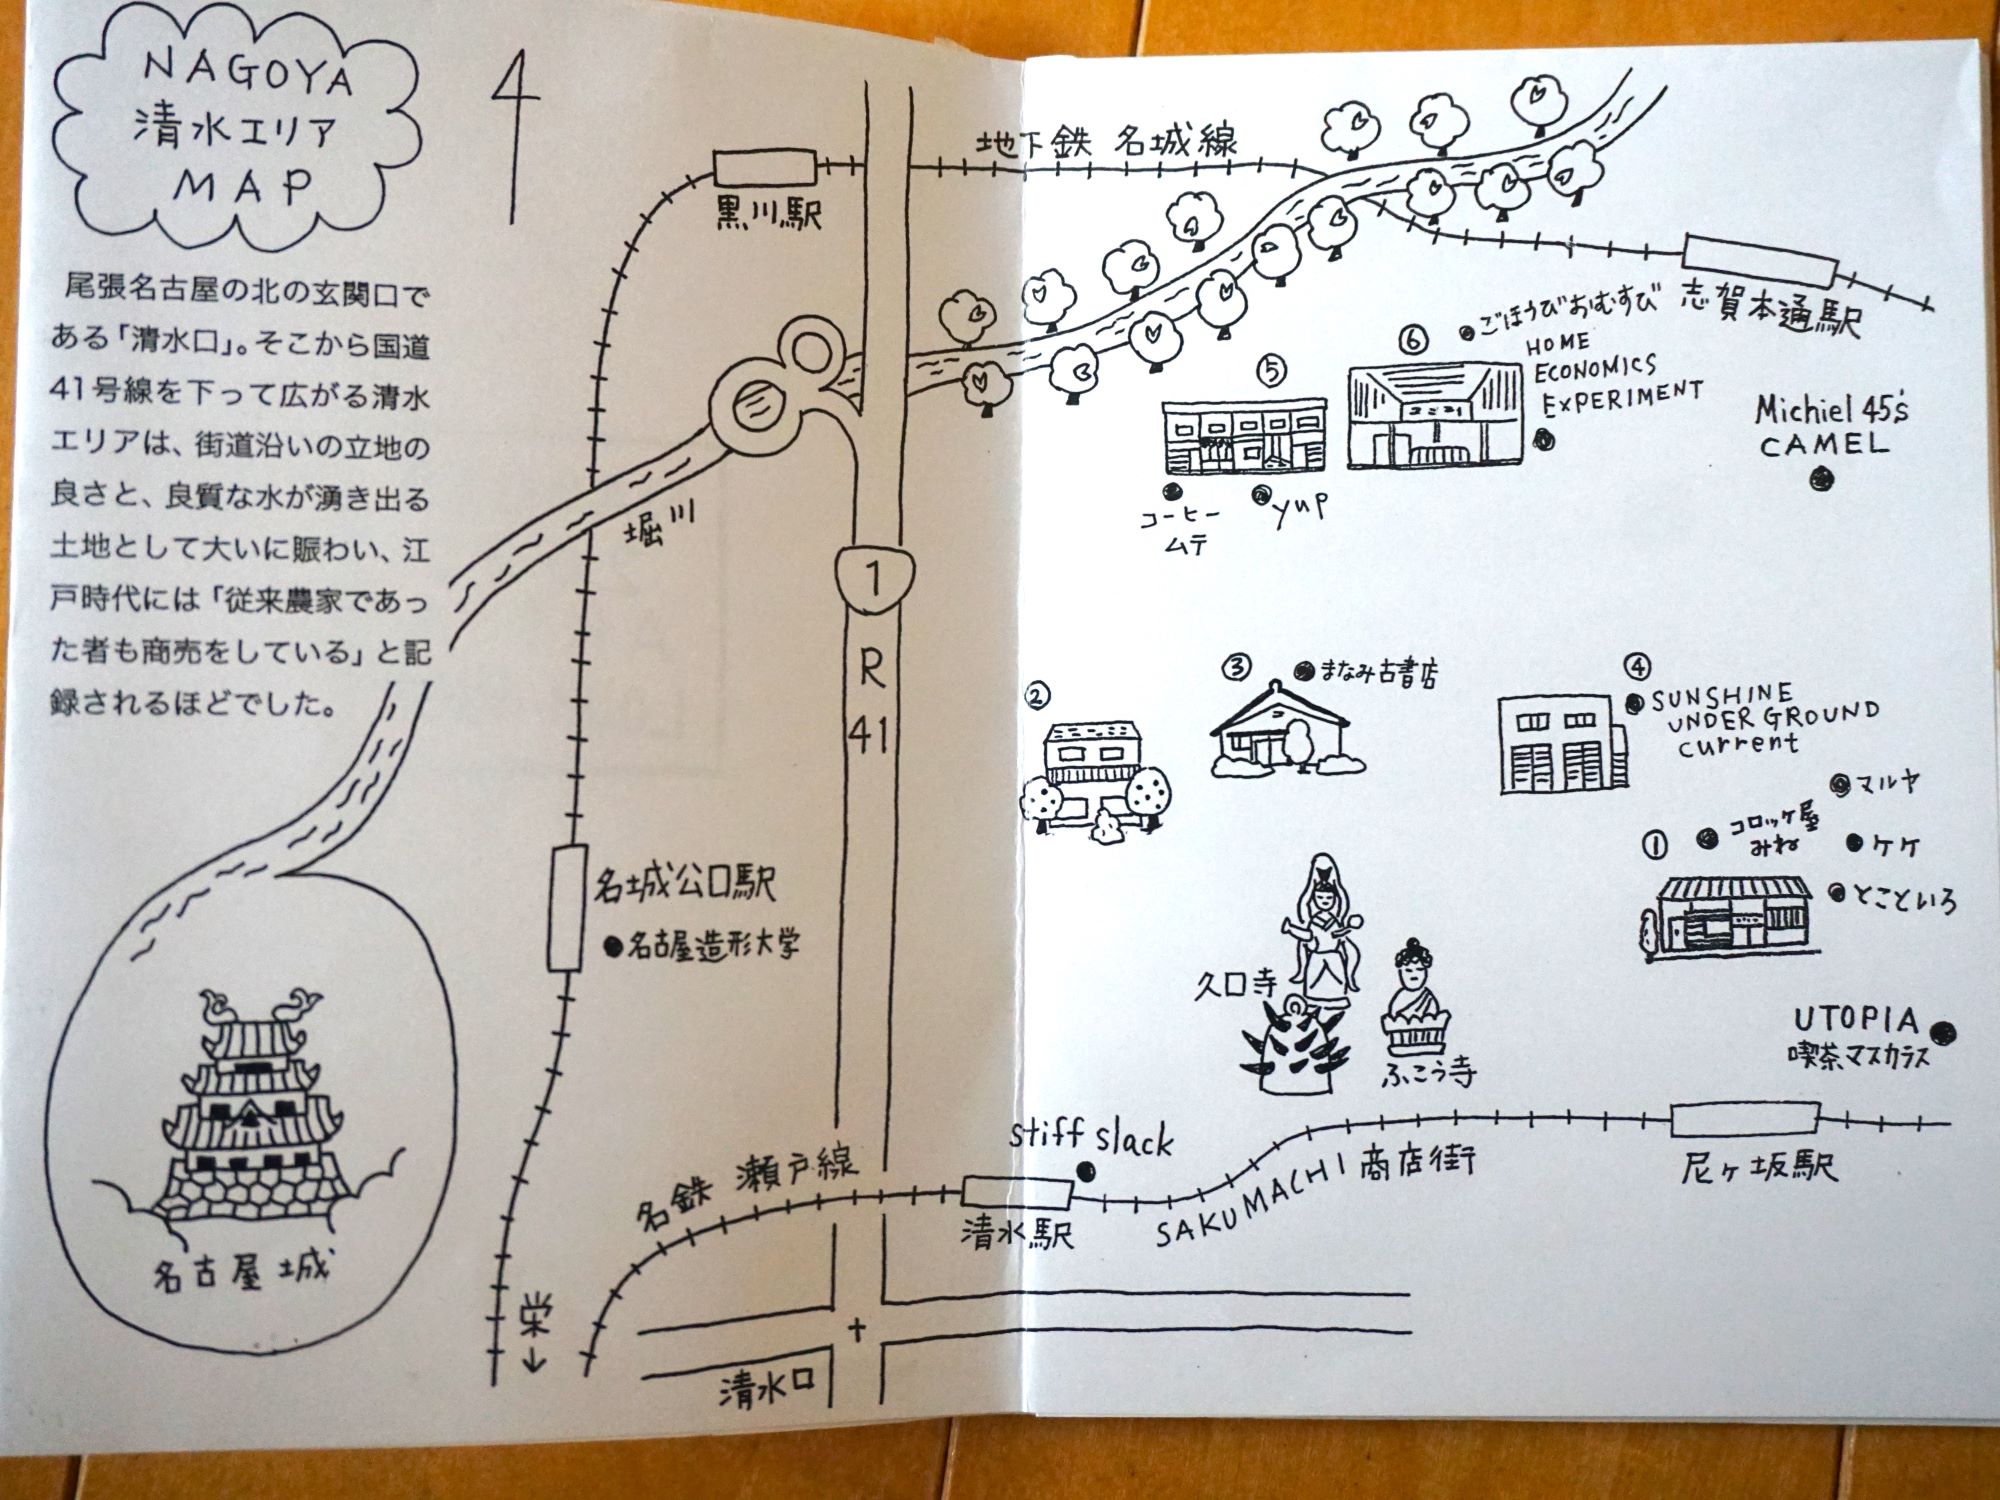 NAGOYA
清水エリア
MAP
尾張名古屋の北の玄関口で
ある「清水口」。そこから国道
41号線を下って広がる清水
エリアは、街道沿いの立地の
良さと、良質な水が湧き出る
土地として大いに賑わい、江
戸時代には「従来農家であっ
た者も商売をしている」と記
録されるほどでした。
名古屋城
黒川駅
堀川
名城公口駅
名古屋造形大学
栄
名鉄 瀬戸線
清水口
1
R
41
地下鉄 名城線
志賀本通駅
⑥
ごほうびおむすび
HOME
ECONOMICS
EXPERIMENT
⑤
コーヒー
ムテ
yup
Michiel 45's
CAMEL
②
③
まなみ古書店
④
SUNSHINE
UNDER GROUND
current
マルヤ
①
コロッケ屋
みね
ケケ
とこといろ
久口寺
ふこう寺
UTOPIA
喫茶マスカラス
stiff slack
清水駅
SAKUMACHI商店街
尼ヶ坂駅